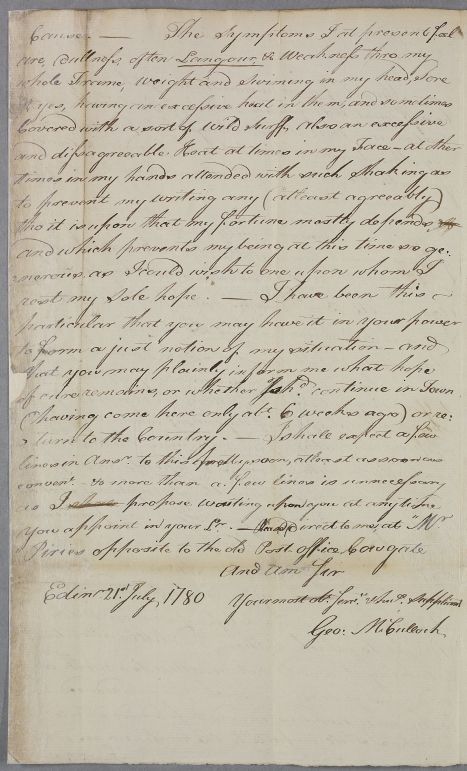 Cause. — The Symptoms I at present feel
are, Dullness, often Langour & Weakness thro my
whole Frame, Weight and Swiming in my head, Sore
Eyes, having an excessive heat in them, and sometimes
Covered with a sort of Wild Scurff, also an excessive
and dissagreeable Heat at times in my Face – at other
times in my hands attended with such Shaking as
to prevent my writing any (atleast agreeably)
tho it is upon that my fortune mostly depends,
and which prevents my being at this time so ge-
nerous, as I could wish to one upon whom I
rest my Sole hope. — I have been this
particular that you may have it in your power
to form a just notion of my situation – and
that you may plainly inform me what hope
of cure remains, or whether I sh.d continue in Town
(having come here only ab.t 6 weeks ago) or re-
turn to the Country. — I shall expect a few
lines in Ans.r to this soon, atleast as soon as
conven.t – & more than a few lines is unnecessary
as I propose waiting upon you at any time
you appoint in your L.r. — Direct to me, at M.r
Piries opposite to the old Post office, Cowgate
And am Sir
Edin.r 21.st July, 1780 Your most ob.t Serv.t & Supplicant
Geo. McCulloch